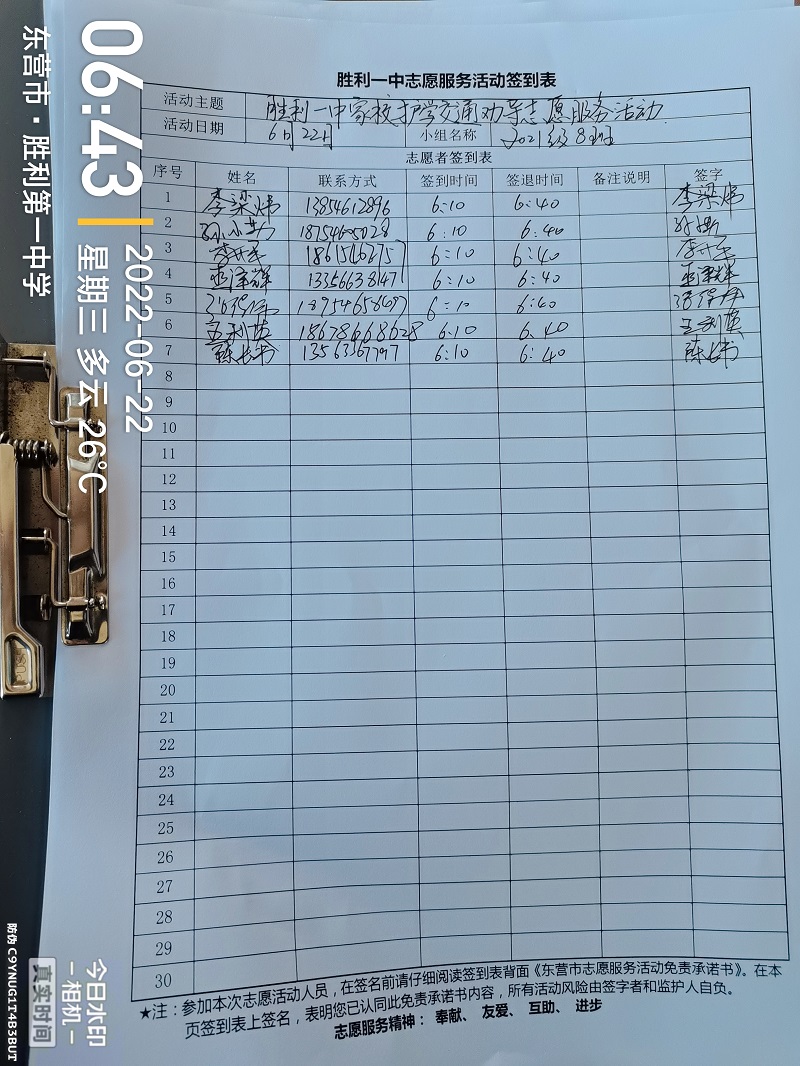 胜利一中志愿服务活动签到表
活动主题 胜利一中家校护学交通劝导志愿服务活动
活动日期 6月22日 小组名称 2021级8班
志愿者签到表
序号 姓名 联系方式 签到时间 签退时间 备注说明 签字
1 李梁炜 13854612896 6:10 6:40 李梁炜
2 6:10 6:40
3 6:10 6:40
4 13356638147 6:10 6:40
5 6:10 6:40
6 王利英 18678668628 6:10 6:40 王利英
7 陈长书 13563367797 6:10 6:40 陈长书
8
9
10
11
12
13
14
15
16
17
18
19
20
21
22
23
24
25
26
27
28
29
30
★注：参加本次志愿活动人员，在签名前请仔细阅读签到表背面《东营市志愿服务活动免责承诺书》。在本
页签到表上签名，表明您已认同此免责承诺书内容，所有活动风险由签字者和监护人自负。
志愿服务精神： 奉献、 友爱、 互助、 进步
06:43
2022-06-22
星期三 多云 26℃
东营市·胜利第一中学
今日水印
-相机-
真实时间
防伪 C9YNUG1T4B3BUT